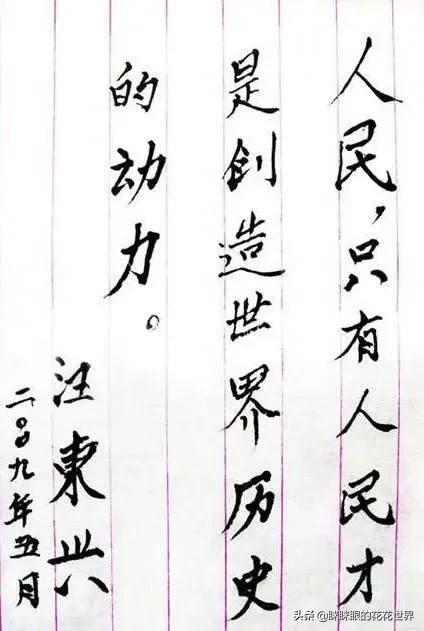 人民，只有人民才
是創造世界历史
的动力。
汪東兴
二〇〇九年五月
头条 @眯眯眼的花花世界